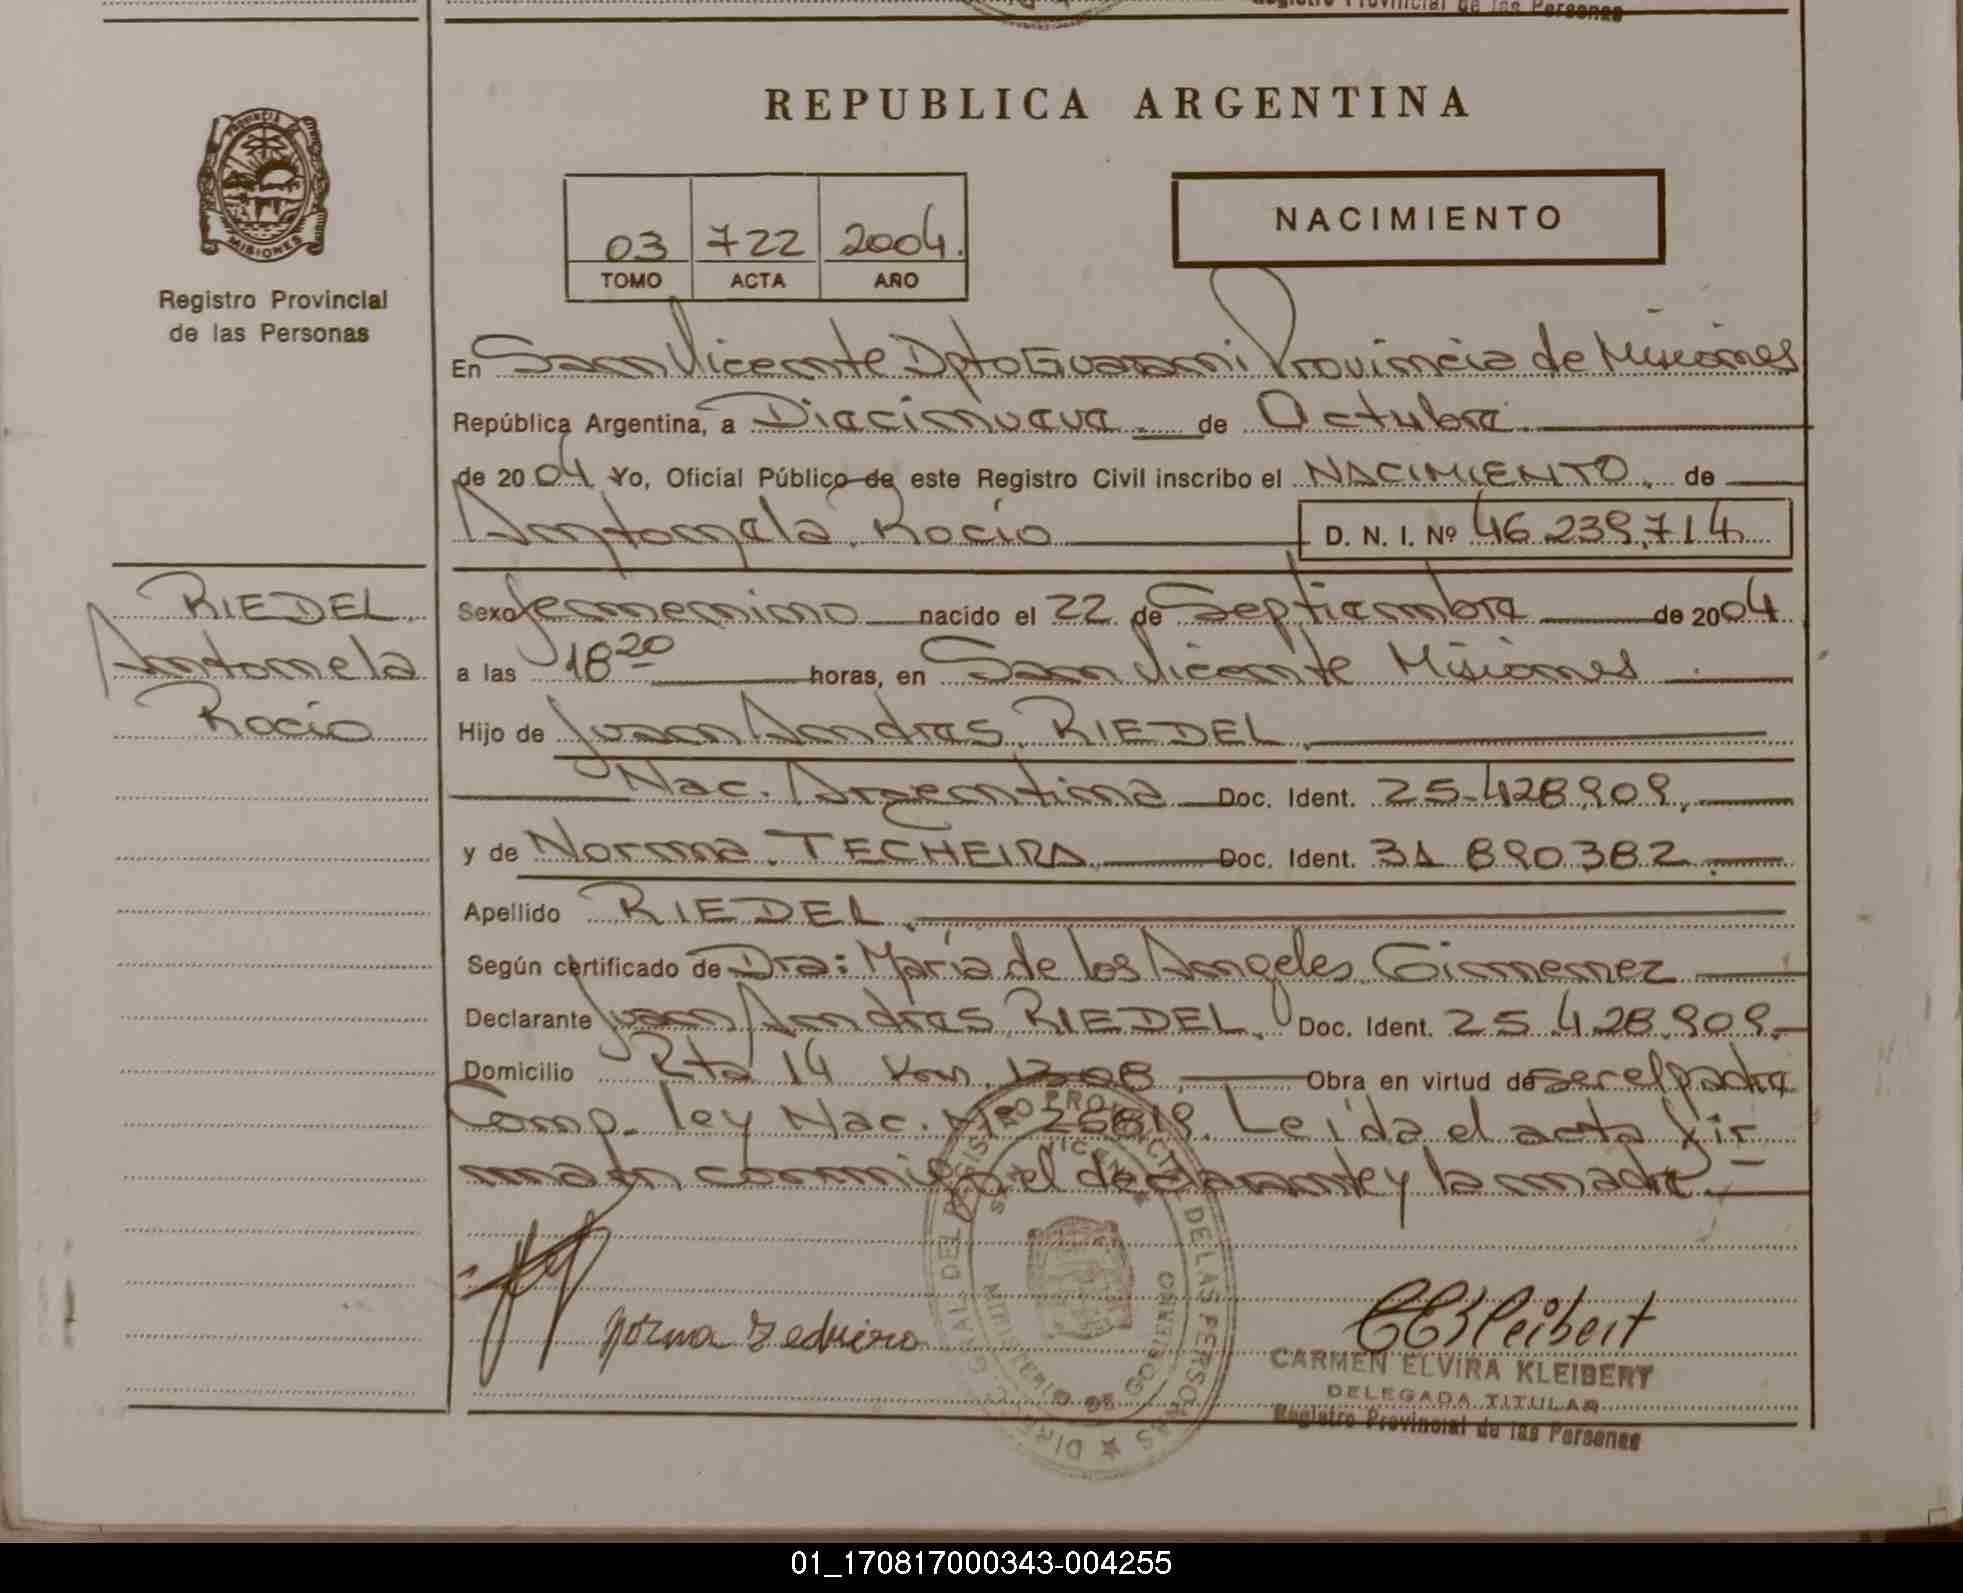 Registro Provincial de las Personas
REPUBLICA ARGENTINA
PROVINCIA DE
MISIONES
Registro Provincial
de las Personas
03 722 2004.
TOMO ACTA AÑO
NACIMIENTO
En San Vicente Dpto Guarani Provincia de Misiones
República Argentina, a Diecinueve de Octubre
de 2004 Yo, Oficial Público de este Registro Civil inscribo el NACIMIENTO de
Antonela Rocío D. N. I. Nº 46.239.714
RIEDEL
Antonela
Rocío
Sexo femenino nacido el 22 de Septiembre de 2004
a las 18 20 horas, en San Vicente Misiones
Hijo de Juan Andres RIEDEL
Nac. Argentina Doc. Ident. 25.428.909
y de Norma TECHEIRA Doc. Ident. 31 890382
Apellido RIEDEL
Según certificado de Dra: María de los Angeles Gimenez
Declarante Juan Andres RIEDEL Doc. Ident. 25.428.909
Domicilio Rta 14 Km. Obra en virtud de ser el padre
Comp. ley Nac. Nº Leída el acta fir
man conmigo el declarante y la madre.
CARMEN ELVIRA KLEIBERT
DELEGADA TITULAR
Registro Provincial de las Personas
DIREC. GRAL. DEL REGISTRO PROVINCIAL DE LAS PERSONAS
MINISTERIO DE GOBIERNO
01_170817000343-004255